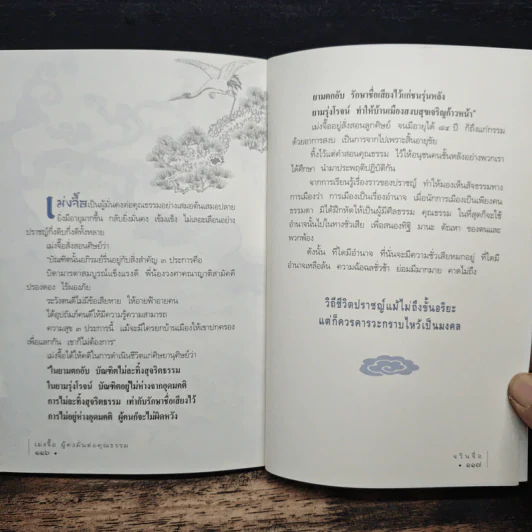 เม่งจื๊อเป็นผู้มั่นคงต่อคุณธรรมอย่างเสมอต้นเสมอปลาย
ยิ่งมีอายุมากขึ้น กลับยิ่งมั่นคง เข้มแข็ง ไม่เลอะเลือนอย่าง
ปราชญ์กึ่งดิบกึ่งดีทั้งหลาย
เม่งจื๊อสั่งสอนศิษย์ว่า
"บัณฑิตนั้นอภิรมย์รื่นอยู่กับสิ่งสำคัญ ๓ ประการคือ
บิดามารดาสมบูรณ์แข็งแรงดี พี่น้องวงศาคณาญาติสามัคคี
ปรองดอง ไร้ผองภัย
ระวังตนดีไม่มีข้อเสียหาย ให้อายฟ้าอายคน
ได้อุปถัมภ์คนดีให้มีความรู้ความสามารถ
ความสุข ๓ ประการนี้ แม้จะมีใครยกบ้านเมืองให้เขาปกครอง
เพื่อแลกกัน เขาก็ไม่ต้องการ"
เม่งจื๊อได้ให้คติในการดำเนินชีวิตแก่ศิษยานุศิษย์ว่า
"ในยามตกอับ บัณฑิตไม่ละทิ้งสุจริตธรรม
ในยามรุ่งโรจน์ บัณฑิตอยู่ไม่ห่างจากอุดมคติ
การไม่ละทิ้งสุจริตธรรม เท่ากับรักษาชื่อเสียงไว้
การไม่อยู่ห่างอุดมคติ ผู้คนก็จะไม่ผิดหวัง
เม่งจื๊อ ผู้คงมั่นต่อคุณธรรม
๑๑๖ •
ยามตกอับ รักษาชื่อเสียงไว้แก่ชนรุ่นหลัง
ยามรุ่งโรจน์ ทำให้บ้านเมืองสงบสุขเจริญก้าวหน้า"
เม่งจื๊ออยู่สั่งสอนลูกศิษย์ จนมีอายุได้ ๘๔ ปี ก็ถึงแก่กรรม
ด้วยอาการสงบ เป็นการจากไปเพราะสิ้นอายุขัย
ทิ้งไว้แต่คำสอนคุณธรรม ไว้ให้อนุชนคนชั้นหลังอย่างพวกเรา
ได้ศึกษา นำมาประพฤติปฏิบัติกัน
จากการเรียนรู้เรื่องราวของปราชญ์ ทำให้มองเห็นสัจธรรมทาง
การเมืองว่า การเมืองเป็นเรื่องอำนาจ เมื่อนักการเมืองเป็นเพียงคน
ธรรมดา มิได้มีกหัดให้เป็นผู้มีศีลธรรม คุณธรรม ในที่สุดก็จะใช้
อำนาจนั้นไปในทางชั่วเสีย เพื่อสนองทิฐิ มานะ ตัณหา ของตนและ
พวกพ้อง
ดังนั้น ที่ใดมีอำนาจ ที่นั่นจะมีความชั่วเสียหมกอยู่ ที่ใดมี
อำนาจเหลือล้น ความฉ้อฉลชั่วช้า ย่อมมีมากมาย คาดไม่ถึง
วิถีชีวิตปราชญ์แม้ไม่ถึงชั้นอริยะ
แต่ก็ควรคารวะกราบไหว้เป็นมงคล
• ๑๑๗